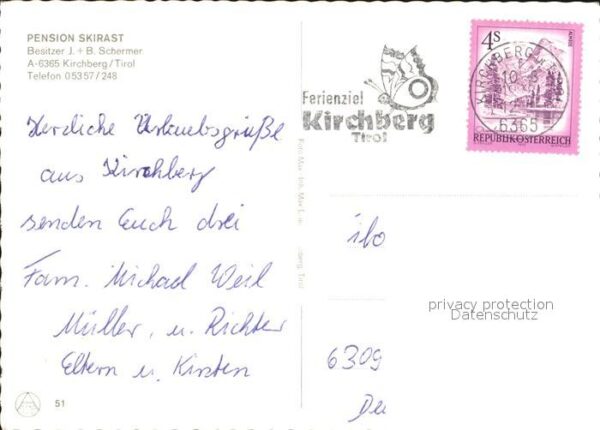 PENSION SKIRAST
Besitzer J. + B. Schermer
A-6365 Kirchberg/Tirol
Telefon 05357/248
Herzliche Urlaubsgrüße
aus Kirchberg
senden Euch drei
Fam. Michael Weil
Müller, u. Richter
Eltern u. Kirsten
51
Ferienziel
Kirchberg
Tirol
4S
KIRCHBERG
6365
REPUBLIK ÖSTERREICH
ibo
privacy protection
Datenschutz
6309
De